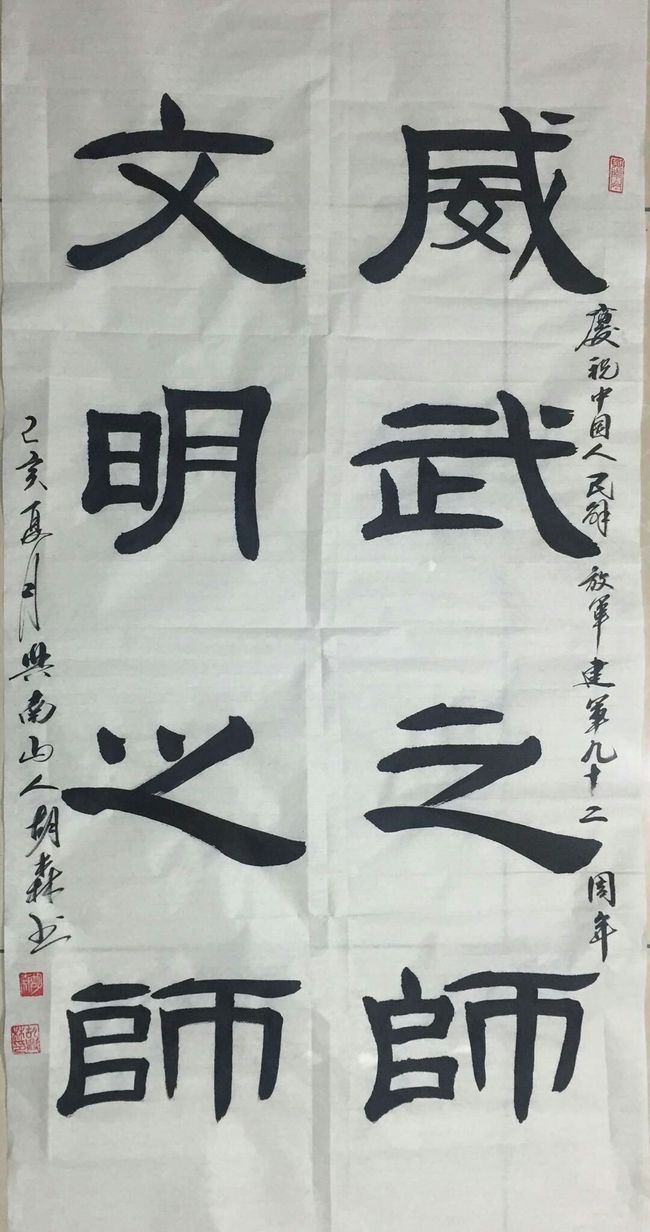 慶祝中国人民解放軍建軍九十二周年
威武之師
文明之師
己亥夏月南山人胡森书